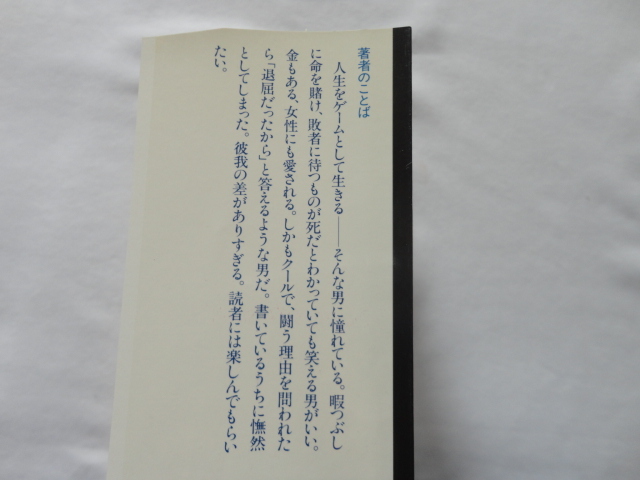 著者のことば
人生をゲームとして生きる――そんな男に憧れている。暇つぶし
に命を賭け、敗者に待つものが死だとわかっていても笑える男がいい。
金もある、女性にも愛される。しかもクールで、闘う理由を問われた
ら「退屈だったから」と答えるような男だ。書いているうちに憮然
としてしまった。彼我の差がありすぎる。読者には楽しんでもらい
たい。